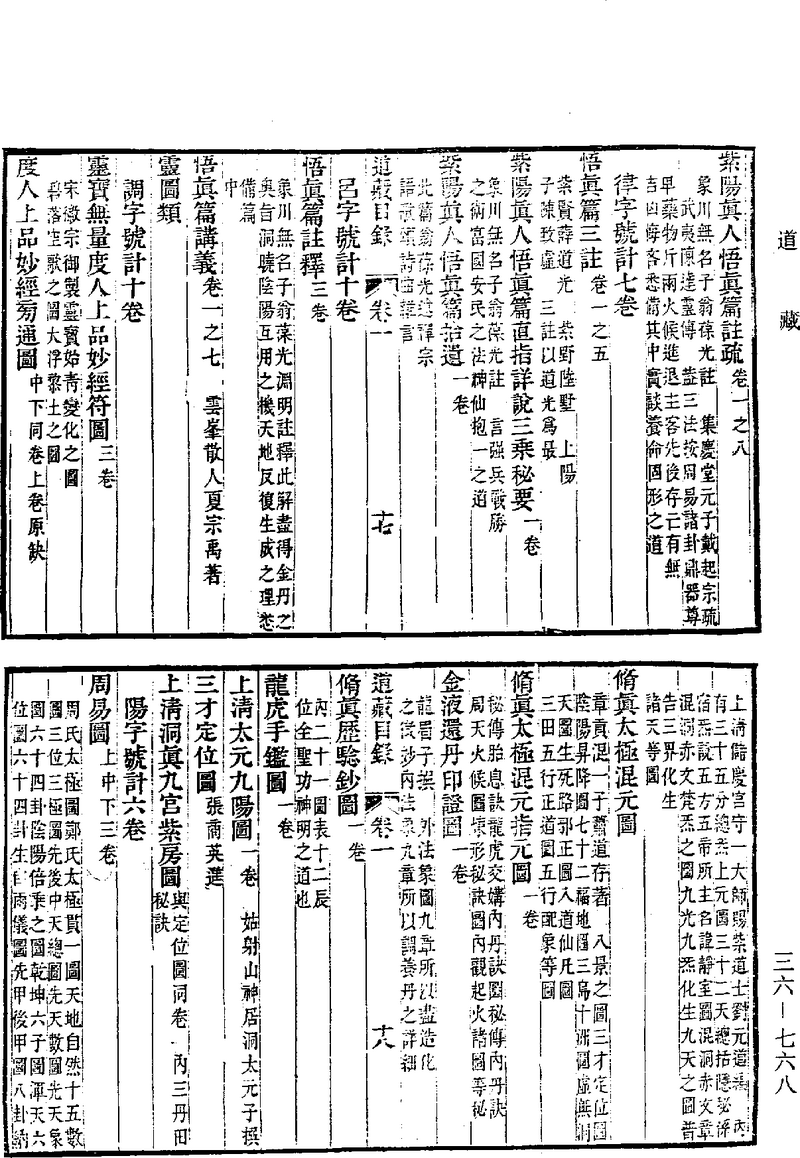 道藏
三六—七六八
紫陽眞人悟眞篇註疏 卷一之八
象川無名子翁葆光註 集慶堂元子戴起宗疏
武夷陳達靈傳 盡三法按周易諸卦鼎器尊
卑藥物斤兩火候進退主客先後存亡有無
吉凶悔吝悉備其中實談養命固形之道
律字號計七卷
悟眞篇三註 卷一之五
紫賢薛道光 紫野陸墅 上陽
子陳致虛 三註以道光爲最
紫陽眞人悟眞篇直指詳說三乘秘要 一卷
象川無名子翁葆光註 言强兵戰勝
之術富國安民之法神仙抱一之道
紫陽眞人悟眞篇拾遺 一卷
此篇翁葆光追釋宗
語意頌詩曲雜言
道藏目錄 卷一 十七
呂字號計十卷
悟眞篇註釋 三卷
象川無名子翁葆光淵明註釋此解盡得金丹之
奧旨洞曉陰陽互用之機天地反復生成之理悉
備篇
中
悟眞篇講義 卷一之七 雲峯散人夏宗禹著
靈圖類
調字號計十卷
靈寶無量度人上品妙經符圖 三卷
宋徽宗御製靈寶始青變化之圖
碧落空歌之圖大浮黎土之圖
度人上品妙經旁通圖 中下同卷上卷原缺
上清儲慶宮守一大師賜紫道士劉元道編 內
有三十五分總炁上元圖三十二天總括隱秘評
宿炁說五方五帝所主名諱靜室圖混洞赤文章
混洞赤文梵炁之圖九光九炁化生九天之圖普
告三界化生
諸天等圖
脩眞太極混元圖
章貢混一子蕭道存著 八景之圖三才定位圖
陰陽昇降圖七十二福地圖三島十洲圖虛無洞
天圖生死路邪正圖入道仙凡圖
三田五行正道圖五行配象等圖
脩眞太極混元指元圖 一卷
秘傳胎息訣龍虎交媾內丹訣圖秘傳內丹訣
周天火候圖煉形秘訣圖內觀起火諸圖等秘
金液還丹印證圖 一卷
龍眉子撰 外法象圖九章所以盡造化
之微妙內法象九章所以調養丹之詳細
道藏目錄 卷一 十八
脩眞歷驗鈔圖 一卷
內二十一圖表十二辰
位全聖功神明之道也
龍虎手鑑圖 一卷
上清太元九陽圖 一卷 姑射山神居洞太元子撰
三才定位圖 張商英選
上清洞眞九宮紫房圖 與定位圖同卷 內三丹田
秘訣
陽字號計六卷
周易圖 上中下三卷
周氏太極圖鄭氏太極貫一圖天地自然十五數
圖三位三極圖先後中天總圖先天數圖先天象
圖六十四卦陰陽倍乘之圖乾坤六子圖渾天六
位圖六十四卦生自兩儀圖先甲後甲圖八卦納